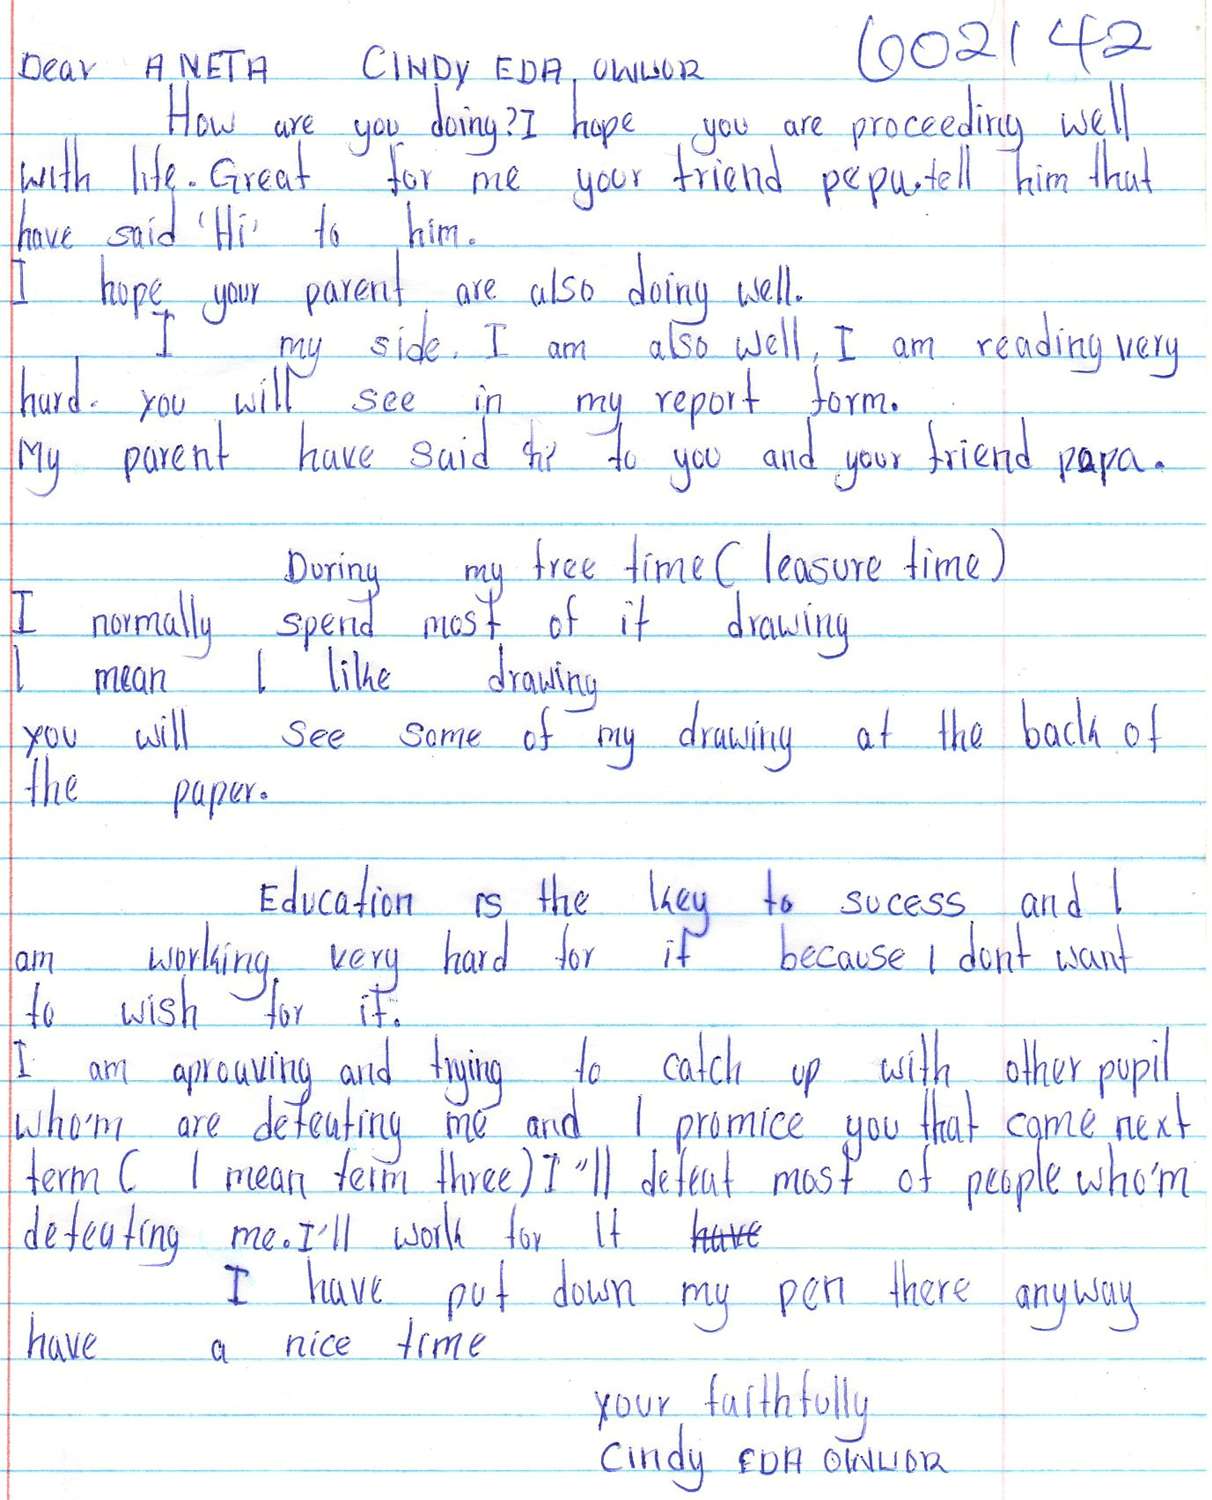 Dear ANETA CINDY EDA OWUOR 6002142
How are you doing?I hope you are proceeding well
with life. Great for me your friend pepu.tell him that
have said 'Hi' to him.
I hope your parent are also doing well.
I my side. I am also well, I am reading very
hard. you will see in my report form.
My parent have said hi to you and your friend papa.
During my free time ( leasure time)
I normally spend most of it drawing
I mean I like drawing
you will see some of my drawing at the back of
the paper.
Education is the key to sucess and I
am working very hard for it because I dont want
to wish for it.
I am aprouving and trying to catch up with other pupil
who'm are defeating me and I promice you that come next
term ( I mean term three) I"ll defeat most of people who'm
defeating me.I'll work for It have
I have put down my pen there anyway
have a nice time
your faithfully
Cindy EDA OWUOR